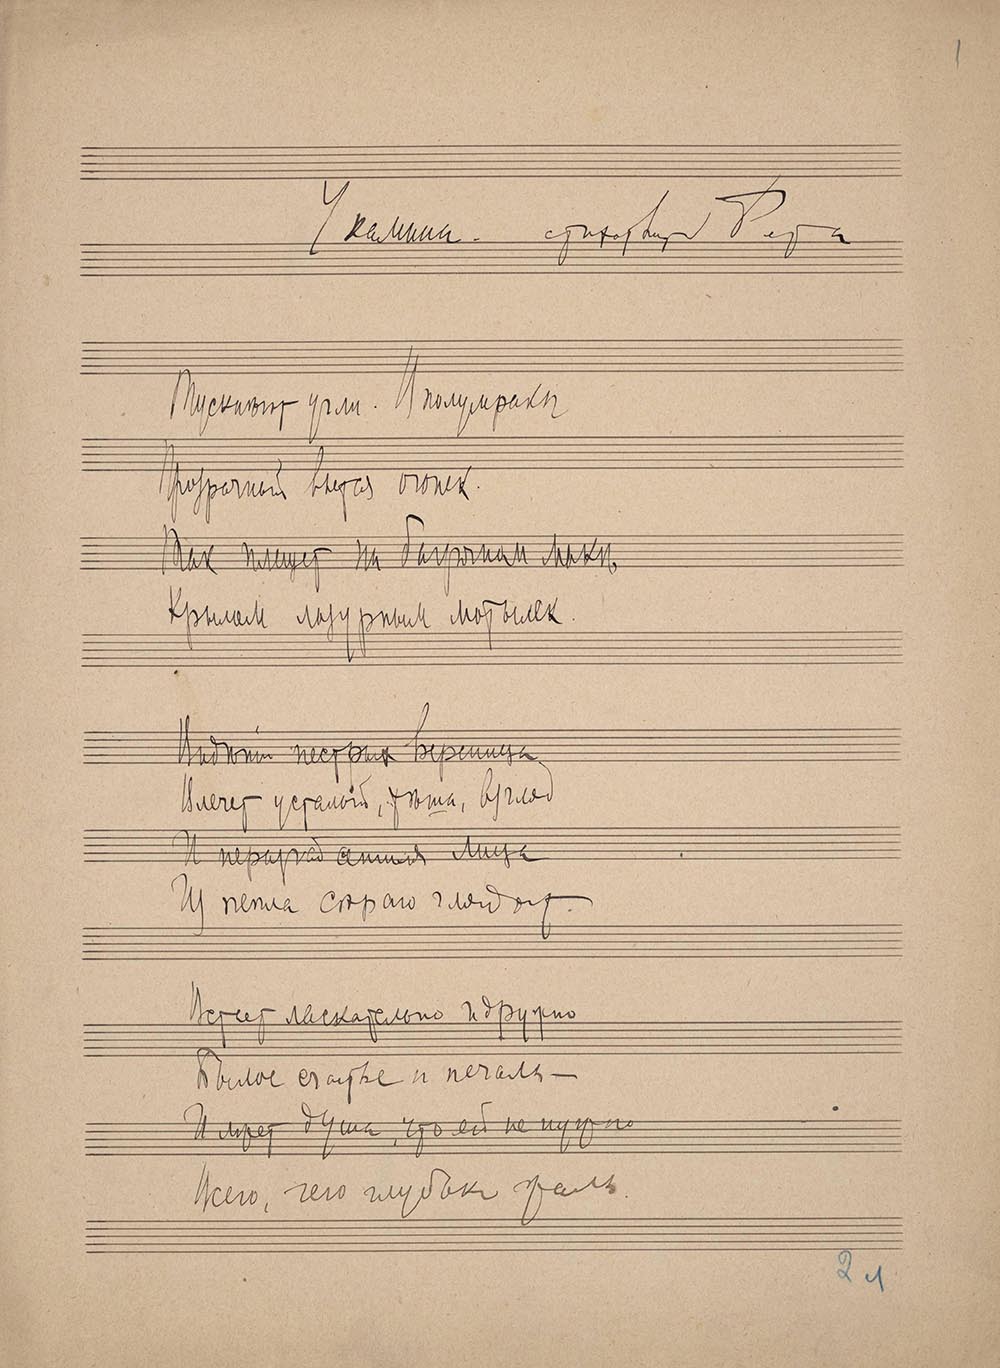 У камина. стихотвор Фета
1
Тускнѣют угли. В полумракѣ
Прозрачный вьется огонек.
Так плещет на багряном макѣ
Крылом лазурным мотылек.
Видѣний пестрых вереница
Влечет усталый, тѣша, взгляд
И неразгаданныя лица
Из пепла сѣраго глядят.
Встает ласкательно и дружно
Былое счастье и печаль –
И лжет душа, что ей не нужно
Всего, чего глубоко жаль.
2 л